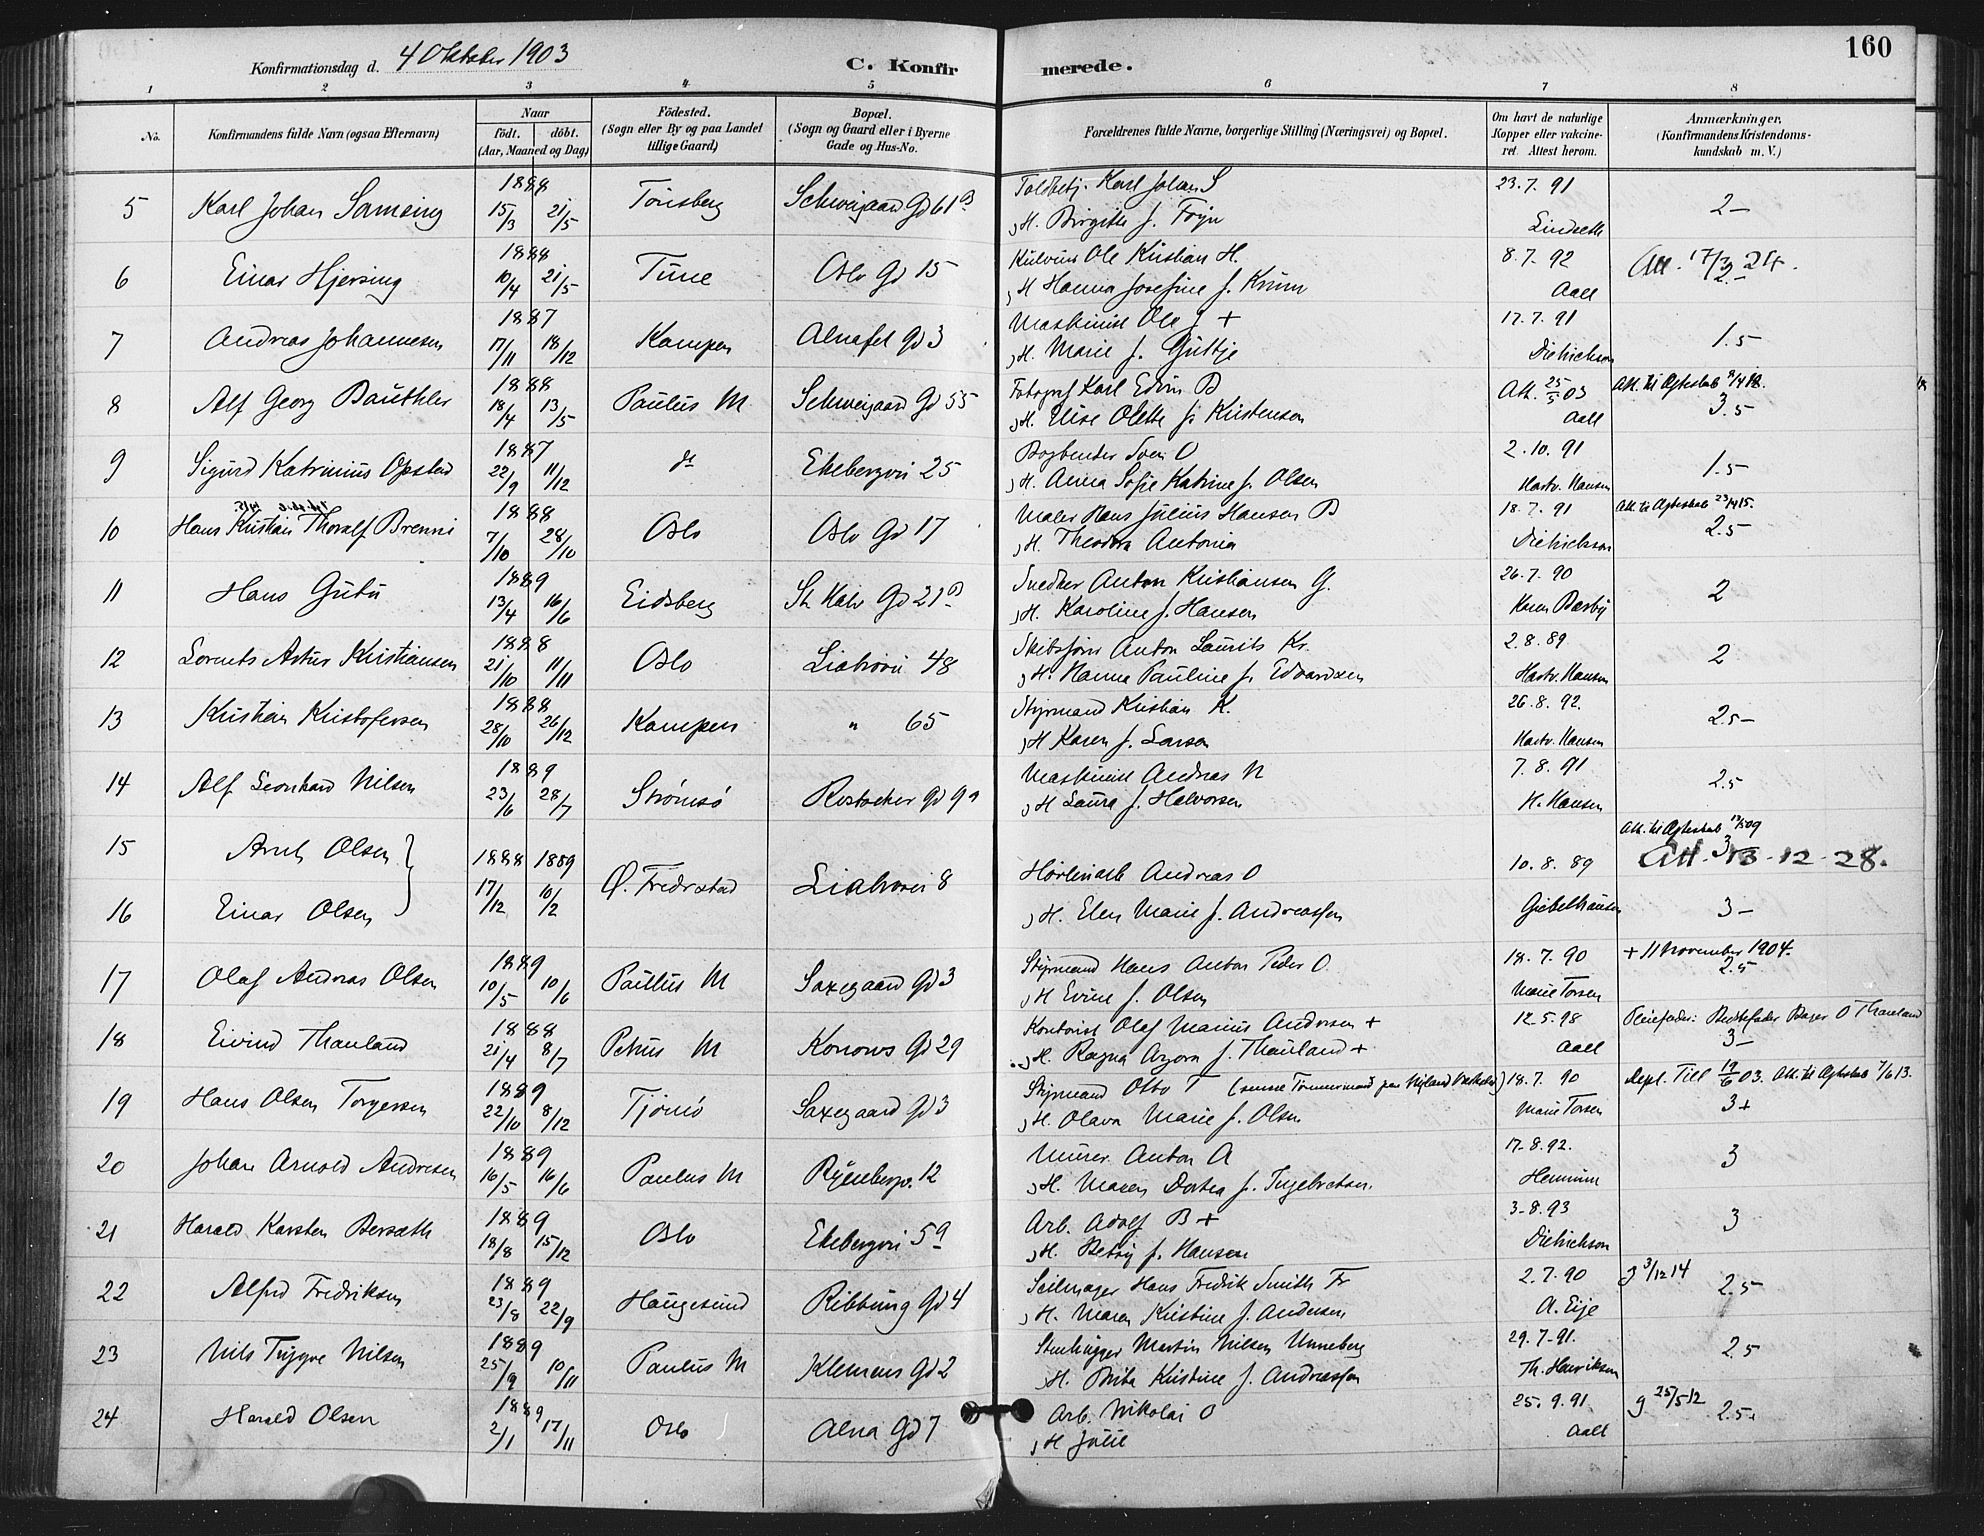 160
Konfirmationsdag d. 4 Oktober 1903
C. Konfirmerede.
1 2 3 4 5 6 7 8
No. Konfirmandens fulde Navn (ogsaa Efternavn) Naar født. døbt. (Aar, Maaned og Dag) Fødested. (Sogn eller By og paa Landet tillige Gaard) Bopæl. (Sogn og Gaard eller i Byerne Gade og Hus-No. Forældrenes fulde Navne, borgerlige Stilling (Næringsvei) og Bopæl. Om havt de naturlige Kopper eller vakcineret. Attest herom. Anmærkninger. (Konfirmandens Kristendomskundskab m. V.)
5 Karl Johan Samsing 1888 15/3 21/5 Tønsberg Schweigaard Gd 61 B Toldbetj. Karl Johan S 23.7.91 2-
H. Birgitte f. Føyn Lindseth
6 Einar Hjersing 1888 10/4 21/5 Tune Oslo Gd 15 Ole Kristian H. 8.7.92 Att. 17/3 24. 2-
H Hanna Josefine f. Krum Aall
7 Andreas Johannesen 1887 17/11 18/12 Kampen Alnafet Gd 3 Maskinist Ole J + 17.7.91 1.5
H. Marie f. Dietrichson
8 Alf Georg Bauthler 1888 18/4 13/5 Paulus M Schweigaard Gd 55 Fotograf Karl Edvin B Att. 25/5 03 Att. til Ægteskab
H. Elise Olette f. Kristensen Aall 3.5
9 Sigurd Katrinius Opstad 1887 22/9 11/12 do Ekebergvei 25 Bogbinder Sven O 2.10.91 1.5
H. Anna Sofie Katrine f. Olsen Hartv. Hansen
10 Hans Kristian Thoralf Brenni 1888 7/10 28/10 Oslo Oslo Gd 17 Maler Hans Julius Hansen B 18.7.91 Att. til Ægteskab 23/4 15.
H. Theodora Antonia Dietrichson 2.5
11 Hans Gutu 1889 13/4 16/6 Eidsberg St. Halv Gd 21 B Snedker Anton Kristiansen G. 26.7.90 2
H. Karoline f. Hansen Karen Bærby
12 Lorents Artur Kristiansen 1888 21/10 11/11 Oslo Liabrovei 48 Skibsfører Anton Laurits Kr. 2.8.89 2
H. Hanna Pauline f. Edvardsen Hartv. Hansen
13 Kristian Kristofersen 1888 28/10 26/12 Kampen " 65 Styrmand Kristian K. 26.8.92. 2.5-
H Karen f. Larsen Hartv. Hansen
14 Alf Leonhard Nilsen 1889 23/6 28/7 Strømsø Rostocker Gd 9 a Maskinist Andreas N 7.8.91 2.5
H Laura f. Halvorsen H. Hansen
15 Arnt Olsen } 1888 17/12 1889 10/2 Ø. Fredrstad Liabrovei 8 Andreas O 10.8.89 Att. til Ægteskab 3 Att. 13-12-28.
16 Einar Olsen H. Elen Marie f. Andreassen Giebelhausen 3-
17 Olaf Andreas Olsen 1889 10/5 10/6 Paulus M Saxegaard Gd 3 Styrmand Hans Anton Peder O. 18.7.90 + 11 November 1904.
H Evine f. Olsen Marie Torsen 2.5
18 Eivind Thauland 1888 21/4 8/7 Petrus M Konows Gd 29 Kontorist Olaf Marius Andersen + 12.5.98 Pleiefader: Bestefader Bager O Thauland
H. Ragna Azora f. Thauland + Aall 3-
19 Hans Olsen Torgersen 1889 22/10 8/12 Tjømø Saxegaard Gd 3 Styrmand Otto T (senere Tømmermand paa Nyland Værksted) 18.7.90 Dept. Till 19/6 03. Att. til Ægteskab 7/6 13.
H. Olava Marie f. Olsen Marie Torsen 3+
20 Johan Arnold Andresen 1889 16/5 16/6 Paulus M Ryenbergv. 12 Murer Anton A 17.8.92. 3
H. Maren Dortea f. Ingebretsen. Hennum
21 Harald Karsten Berseth 1889 18/8 15/12 Oslo Ekebergvei 59 Arb. Adolf B + 3-8.93 3
H. Betsy f. Hansen Dietrichson
22 Alfred Fredriksen 1889 23/8 22/9 Haugesund Ribbung Gd 4 Seilmager Hans Fredrik Smith Fr 2.7.90 g 3/12 14 2.5
H. Maren Kristine f. Andersen A. Eije
23 Nils Trygve Nilsen 1889 25/9 10/11 Paulus M Klemens Gd 2 Stenhugger Martin Nilsen Unneberg 29.7.91. 2.5
H. Brita Kristine f. Andreassen Th. Henriksen
24 Harald Olsen 1889 2/1 17/11 Oslo Alna Gd 7 Arb. Nikolai O 25.9.91 g 25/5 12 2.5
H Julie Aall